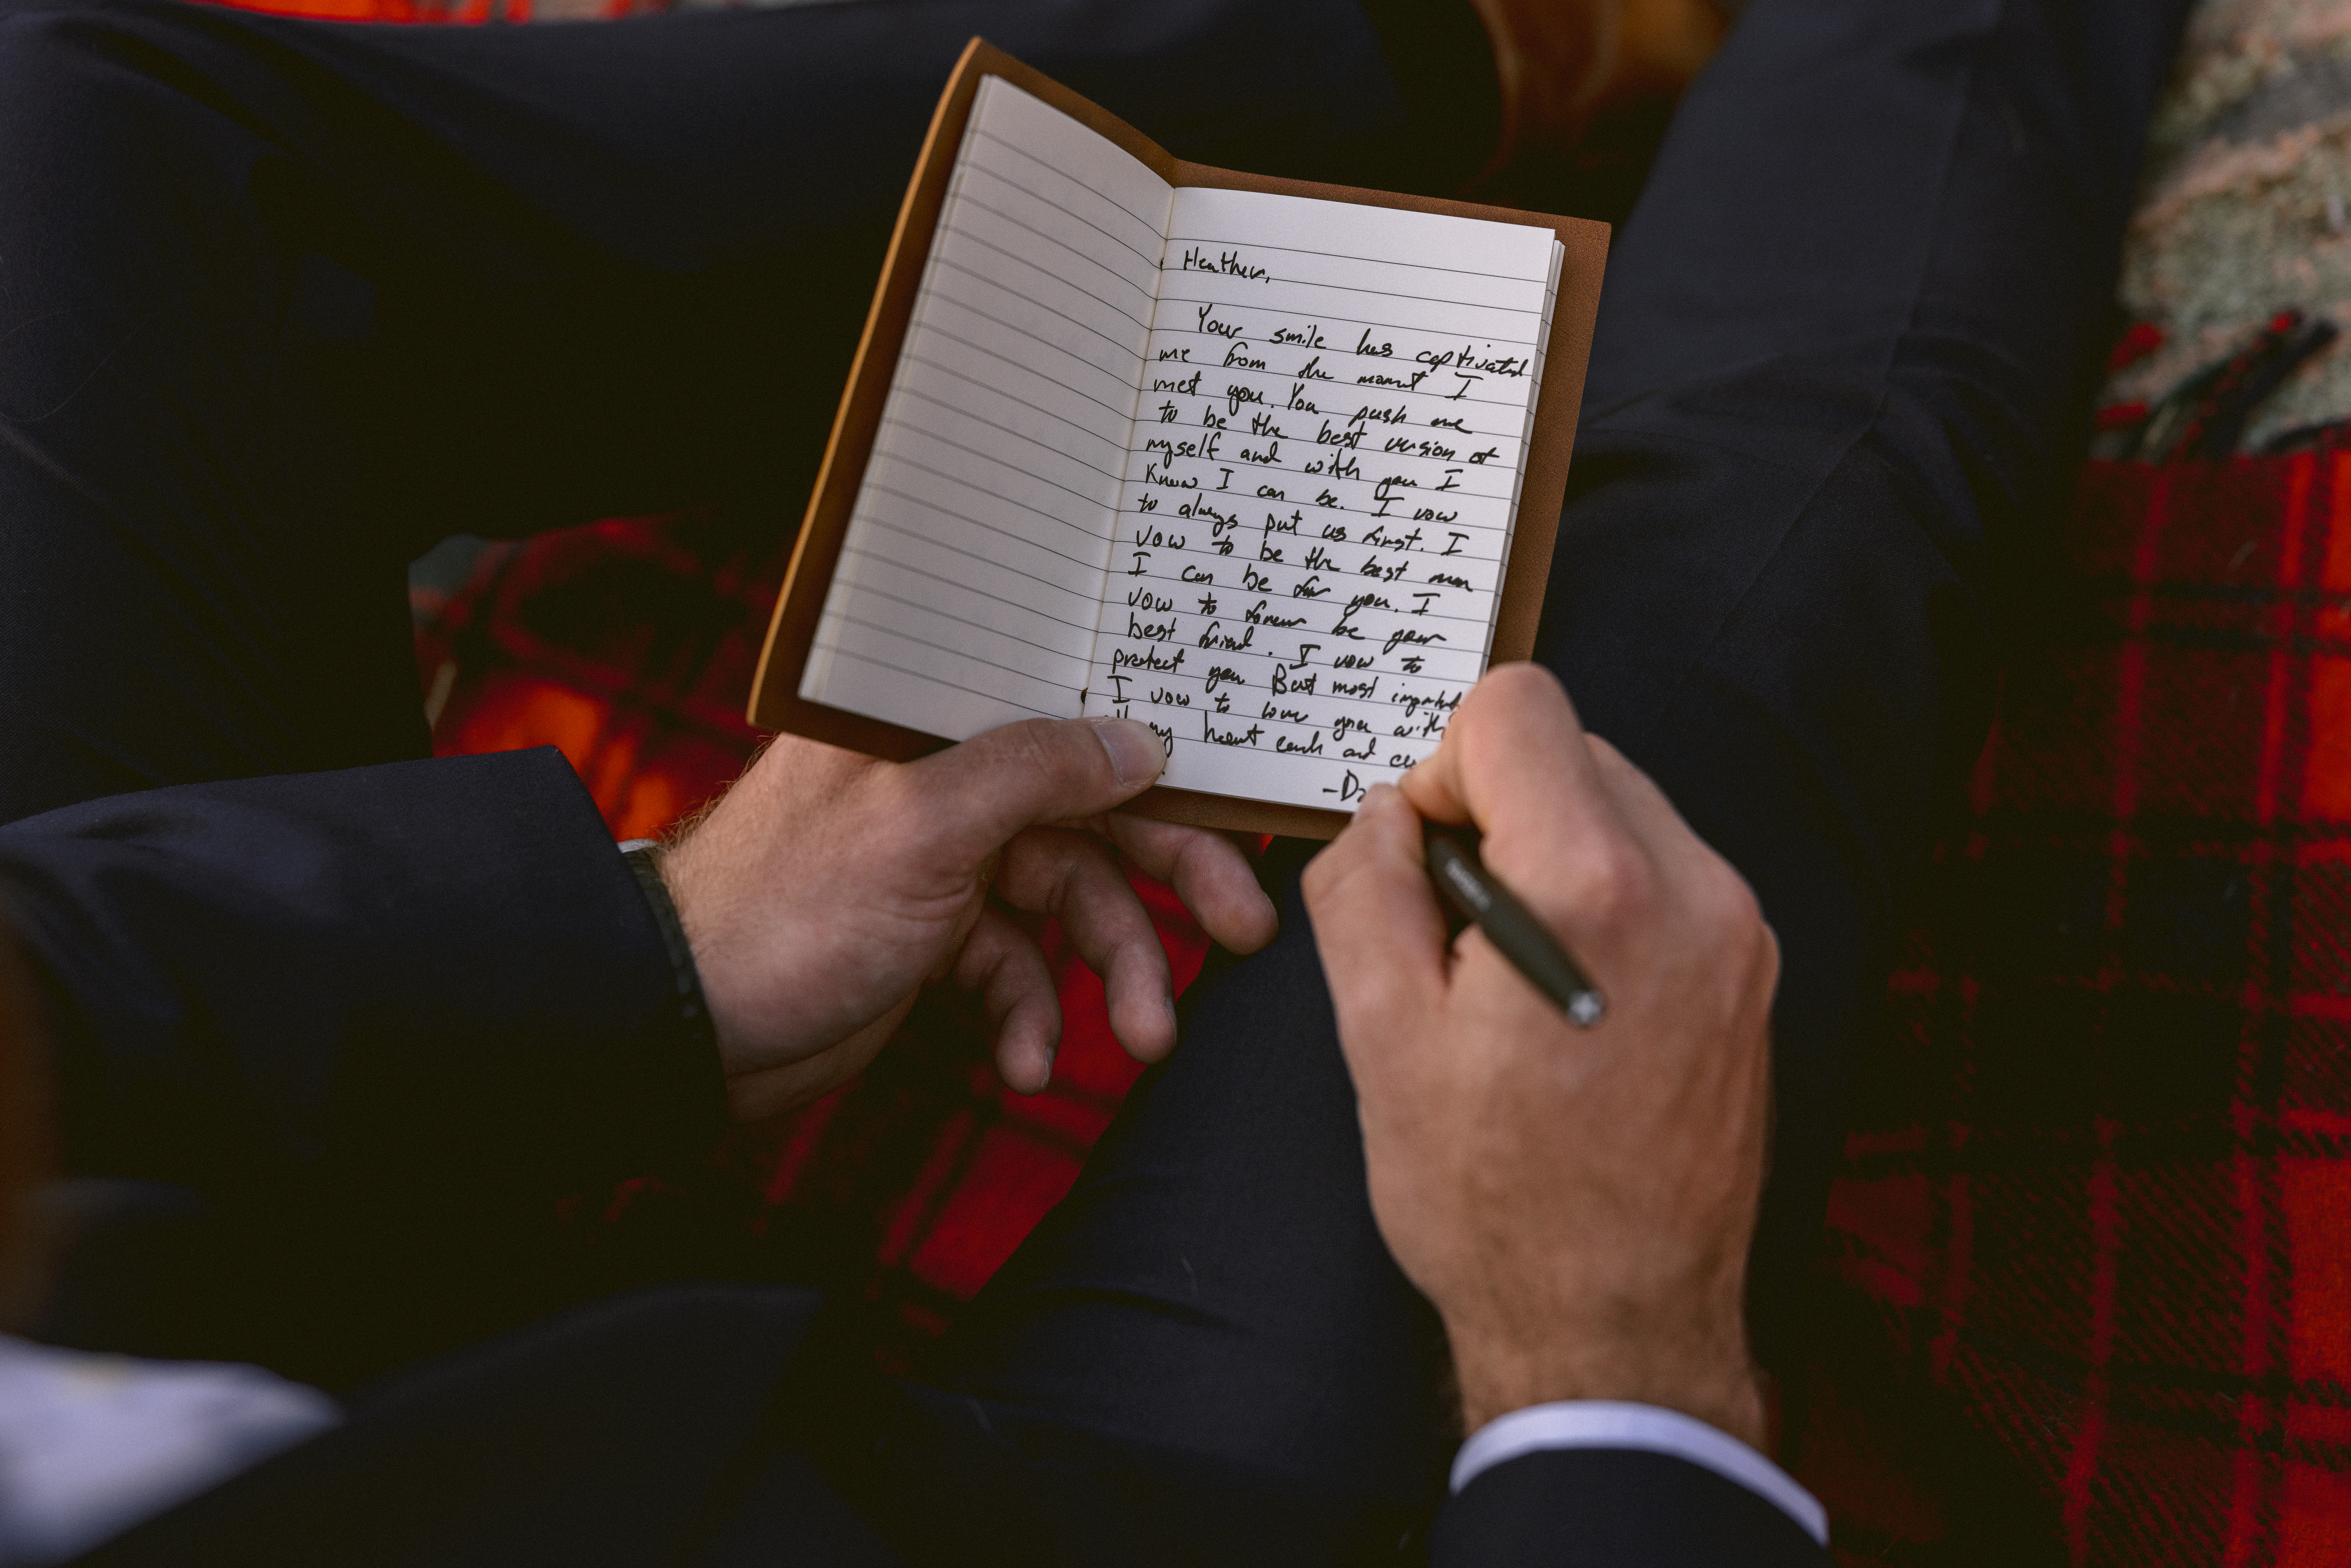 Heather,
Your smile has captivated
me from the moment I
met you. You push me
to be the best version of
myself and with you I
know I can be. I vow
to always put us first. I
vow to be the best man
I can be for you. I
vow to forever be your
best friend. I vow to
protect you. But most
I vow to love you with
my heart each and
-D